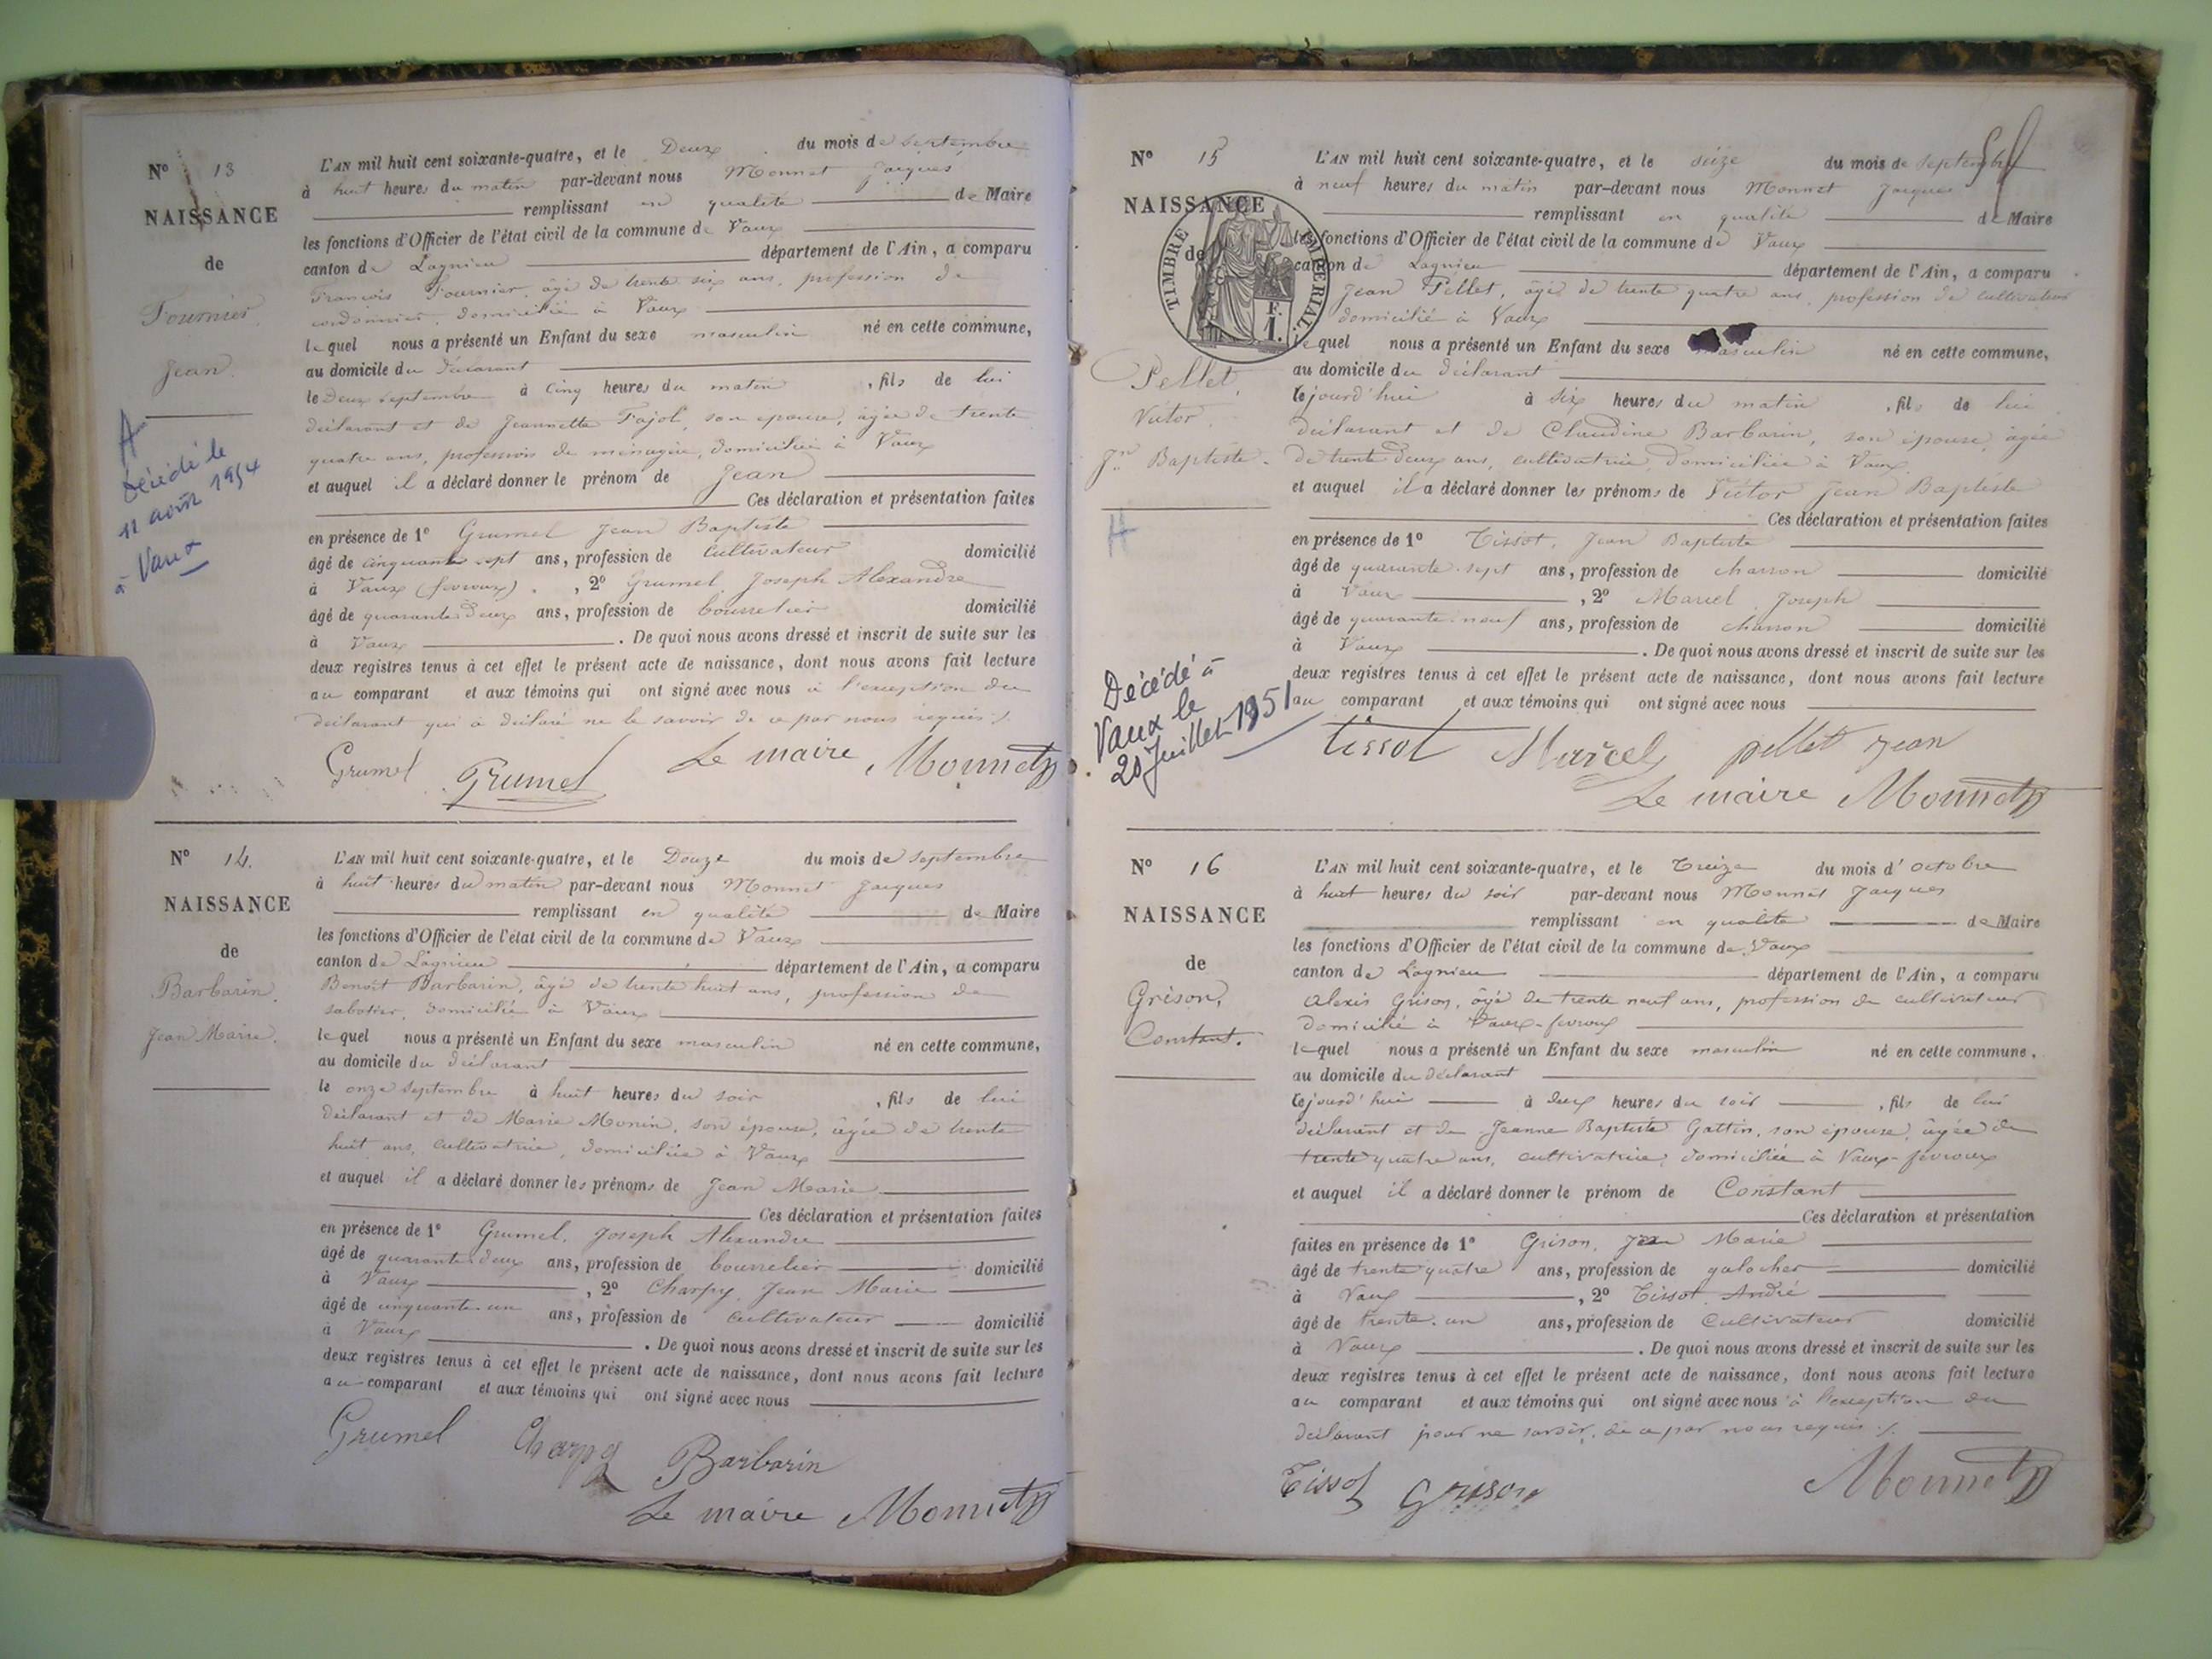 N° 13
NAISSANCE
de
Fournier
Jean
A
Décédé le
11 août 1954
à Vaux
L'AN mil huit cent soixante-quatre, et le Deux du mois de septembre
à huit heures du matin par-devant nous Monnet Jacques
remplissant en qualité de Maire
les fonctions d'Officier de l'état civil de la commune de Vaux
canton de Lagnieu département de l'Ain, a comparu
François Fournier, âgé de trente six ans, profession de
cordonnier, domicilié à Vaux
lequel nous a présenté un Enfant du sexe masculin né en cette commune,
au domicile du déclarant
le Deux septembre à cinq heures du matin, fils de lui
déclarant et de Jeannette Fajol, son épouse, âgée de trente
quatre ans, profession de ménagère, domiciliée à Vaux
et auquel il a déclaré donner le prénom de Jean
Ces déclaration et présentation faites
en présence de 1° Grumel Jean Baptiste
âgé de cinquante sept ans, profession de cultivateur domicilié
à Vaux (fevroux), 2° Grumel Joseph Alexandre
âgé de quarante deux ans, profession de bourrelier domicilié
à Vaux. De quoi nous avons dressé et inscrit de suite sur les
deux registres tenus à cet effet le présent acte de naissance, dont nous avons fait lecture
au comparant et aux témoins qui ont signé avec nous à l'exception du
déclarant qui a déclaré ne le savoir de ce par nous requis ./.
Grumel Grumel Le maire Monnet
N° 14.
NAISSANCE
de
Barbarin
Jean Marie.
L'AN mil huit cent soixante-quatre, et le Douze du mois de septembre
à huit heures du matin par-devant nous Monnet Jacques
remplissant en qualité de Maire
les fonctions d'Officier de l'état civil de la commune de Vaux
canton de Lagnieu département de l'Ain, a comparu
Benoit Barbarin, âgé de trente huit ans, profession de
sabotier, domicilié à Vaux
lequel nous a présenté un Enfant du sexe masculin né en cette commune,
au domicile du déclarant
le onze septembre à huit heures du soir, fils de lui
déclarant et de Marie Monin, son épouse, âgée de trente
huit ans, cultivatrice, domiciliée à Vaux
et auquel il a déclaré donner les prénoms de Jean Marie
Ces déclaration et présentation faites
en présence de 1° Grumel, Joseph Alexandre
âgé de quarante deux ans, profession de bourrelier domicilié
à Vaux, 2° Charpy, Jean Marie
âgé de cinquante un ans, profession de cultivateur domicilié
à Vaux. De quoi nous avons dressé et inscrit de suite sur les
deux registres tenus à cet effet le présent acte de naissance, dont nous avons fait lecture
au comparant et aux témoins qui ont signé avec nous
Grumel Charpy Barbarin
Le maire Monnet
N° 15
NAISSANCE
de
TIMBRE IMPERIAL.
1 F.
Pellet,
Victor
Jn Baptiste.
Décédé à
Vaux le
20 Juillet 1951
L'AN mil huit cent soixante-quatre, et le seize du mois de septembre
à neuf heures du matin par-devant nous Monnet Jacques
remplissant en qualité de Maire
les fonctions d'Officier de l'état civil de la commune de Vaux
canton de Lagnieu département de l'Ain, a comparu
Jean Pellet, âgé de trente quatre ans, profession de cultivateur
domicilié à Vaux
lequel nous a présenté un Enfant du sexe masculin né en cette commune,
au domicile du déclarant
cejourd'hui à six heures du matin, fils de lui
déclarant et de Claudine Barbarin, son épouse, âgée
de trente deux ans, cultivatrice, domiciliée à Vaux
et auquel il a déclaré donner les prénoms de Victor Jean Baptiste
Ces déclaration et présentation faites
en présence de 1° Tissot, Jean Baptiste
âgé de quarante sept ans, profession de charron domicilié
à Vaux, 2° Marcel Joseph
âgé de quarante neuf ans, profession de charron domicilié
à Vaux. De quoi nous avons dressé et inscrit de suite sur les
deux registres tenus à cet effet le présent acte de naissance, dont nous avons fait lecture
au comparant et aux témoins qui ont signé avec nous
tissot Marcel pellet jean
Le maire Monnet
N° 16
NAISSANCE
de
Grison,
Constant.
L'AN mil huit cent soixante-quatre, et le Treize du mois d'octobre
à huit heures du soir par-devant nous Monnet Jacques
remplissant en qualité de Maire
les fonctions d'Officier de l'état civil de la commune de Vaux
canton de Lagnieu département de l'Ain, a comparu
Alexis Grison, âgé de trente neuf ans, profession de cultivateur
domicilié à Vaux-fevroux
lequel nous a présenté un Enfant du sexe masculin né en cette commune,
au domicile du déclarant
cejourd'hui à deux heures du soir, fils de lui
déclarant et de Jeanne Baptiste Gattin, son épouse, âgée de
trente quatre ans, cultivatrice, domiciliée à Vaux-fevroux
et auquel il a déclaré donner le prénom de Constant
Ces déclaration et présentation
faites en présence de 1° Grison, Jean Marie
âgé de trente quatre ans, profession de galocher domicilié
à Vaux, 2° Tissot André
âgé de trente-un ans, profession de cultivateur domicilié
à Vaux. De quoi nous avons dressé et inscrit de suite sur les
deux registres tenus à cet effet le présent acte de naissance, dont nous avons fait lecture
au comparant et aux témoins qui ont signé avec nous à l'exception du
déclarant pour ne savoir, de ce par nous requis ./.
Tissot Grison Monnet